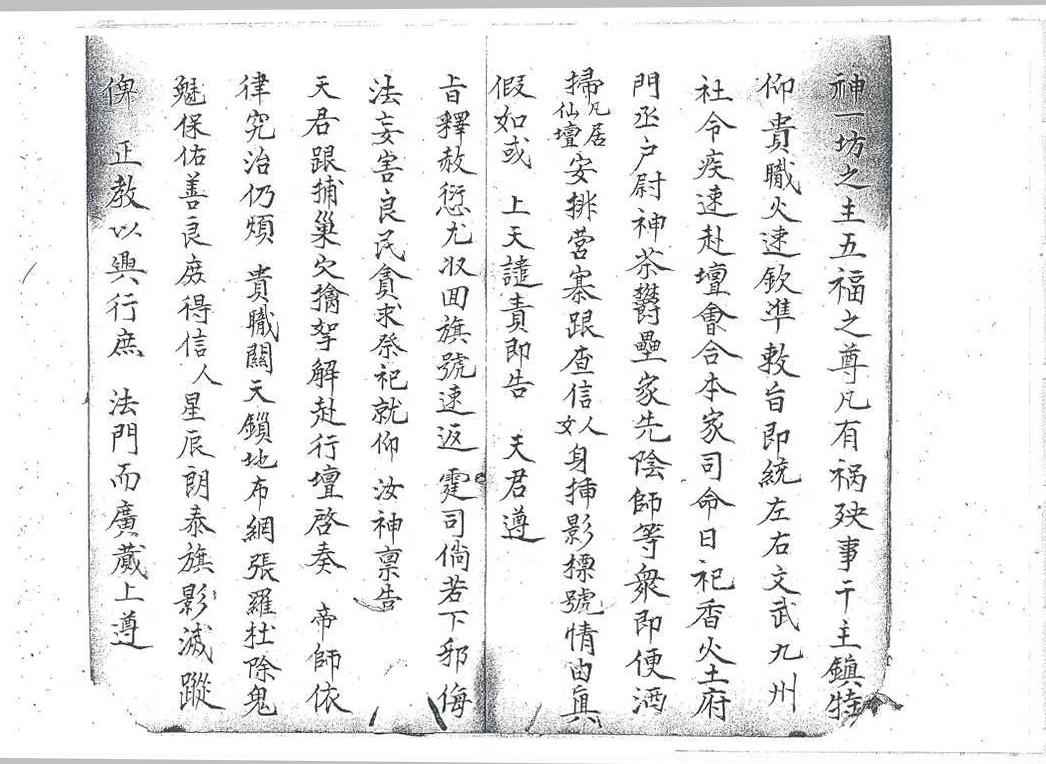 神一坊之主五福之尊凡有祸殃事干主鎮特
仰貴職火速欽準敕旨即統左右文武九州
社令疾速赴壇會合本家司命日祀香火土府
門丞户尉神荼欝壘家先陰師等衆即便洒
掃凡居仙壇安排营寨跟查信人女身揷影摽號情由真
假如或上天譴責即告天君遵
旨釋赦愆尤収囬旗號速返霆司倘若下邪侮
法妄害良民貪求祭祀就仰汝神禀告
天君跟捕巢穴擒拏解赴行壇啓奏帝師依
律究治仍煩貴職闗天鎖地布網張羅杜除鬼
魅保佑善良庶得信人星辰朗泰旗影滅蹤
俾正教以興行庶法門而廣蕆上遵